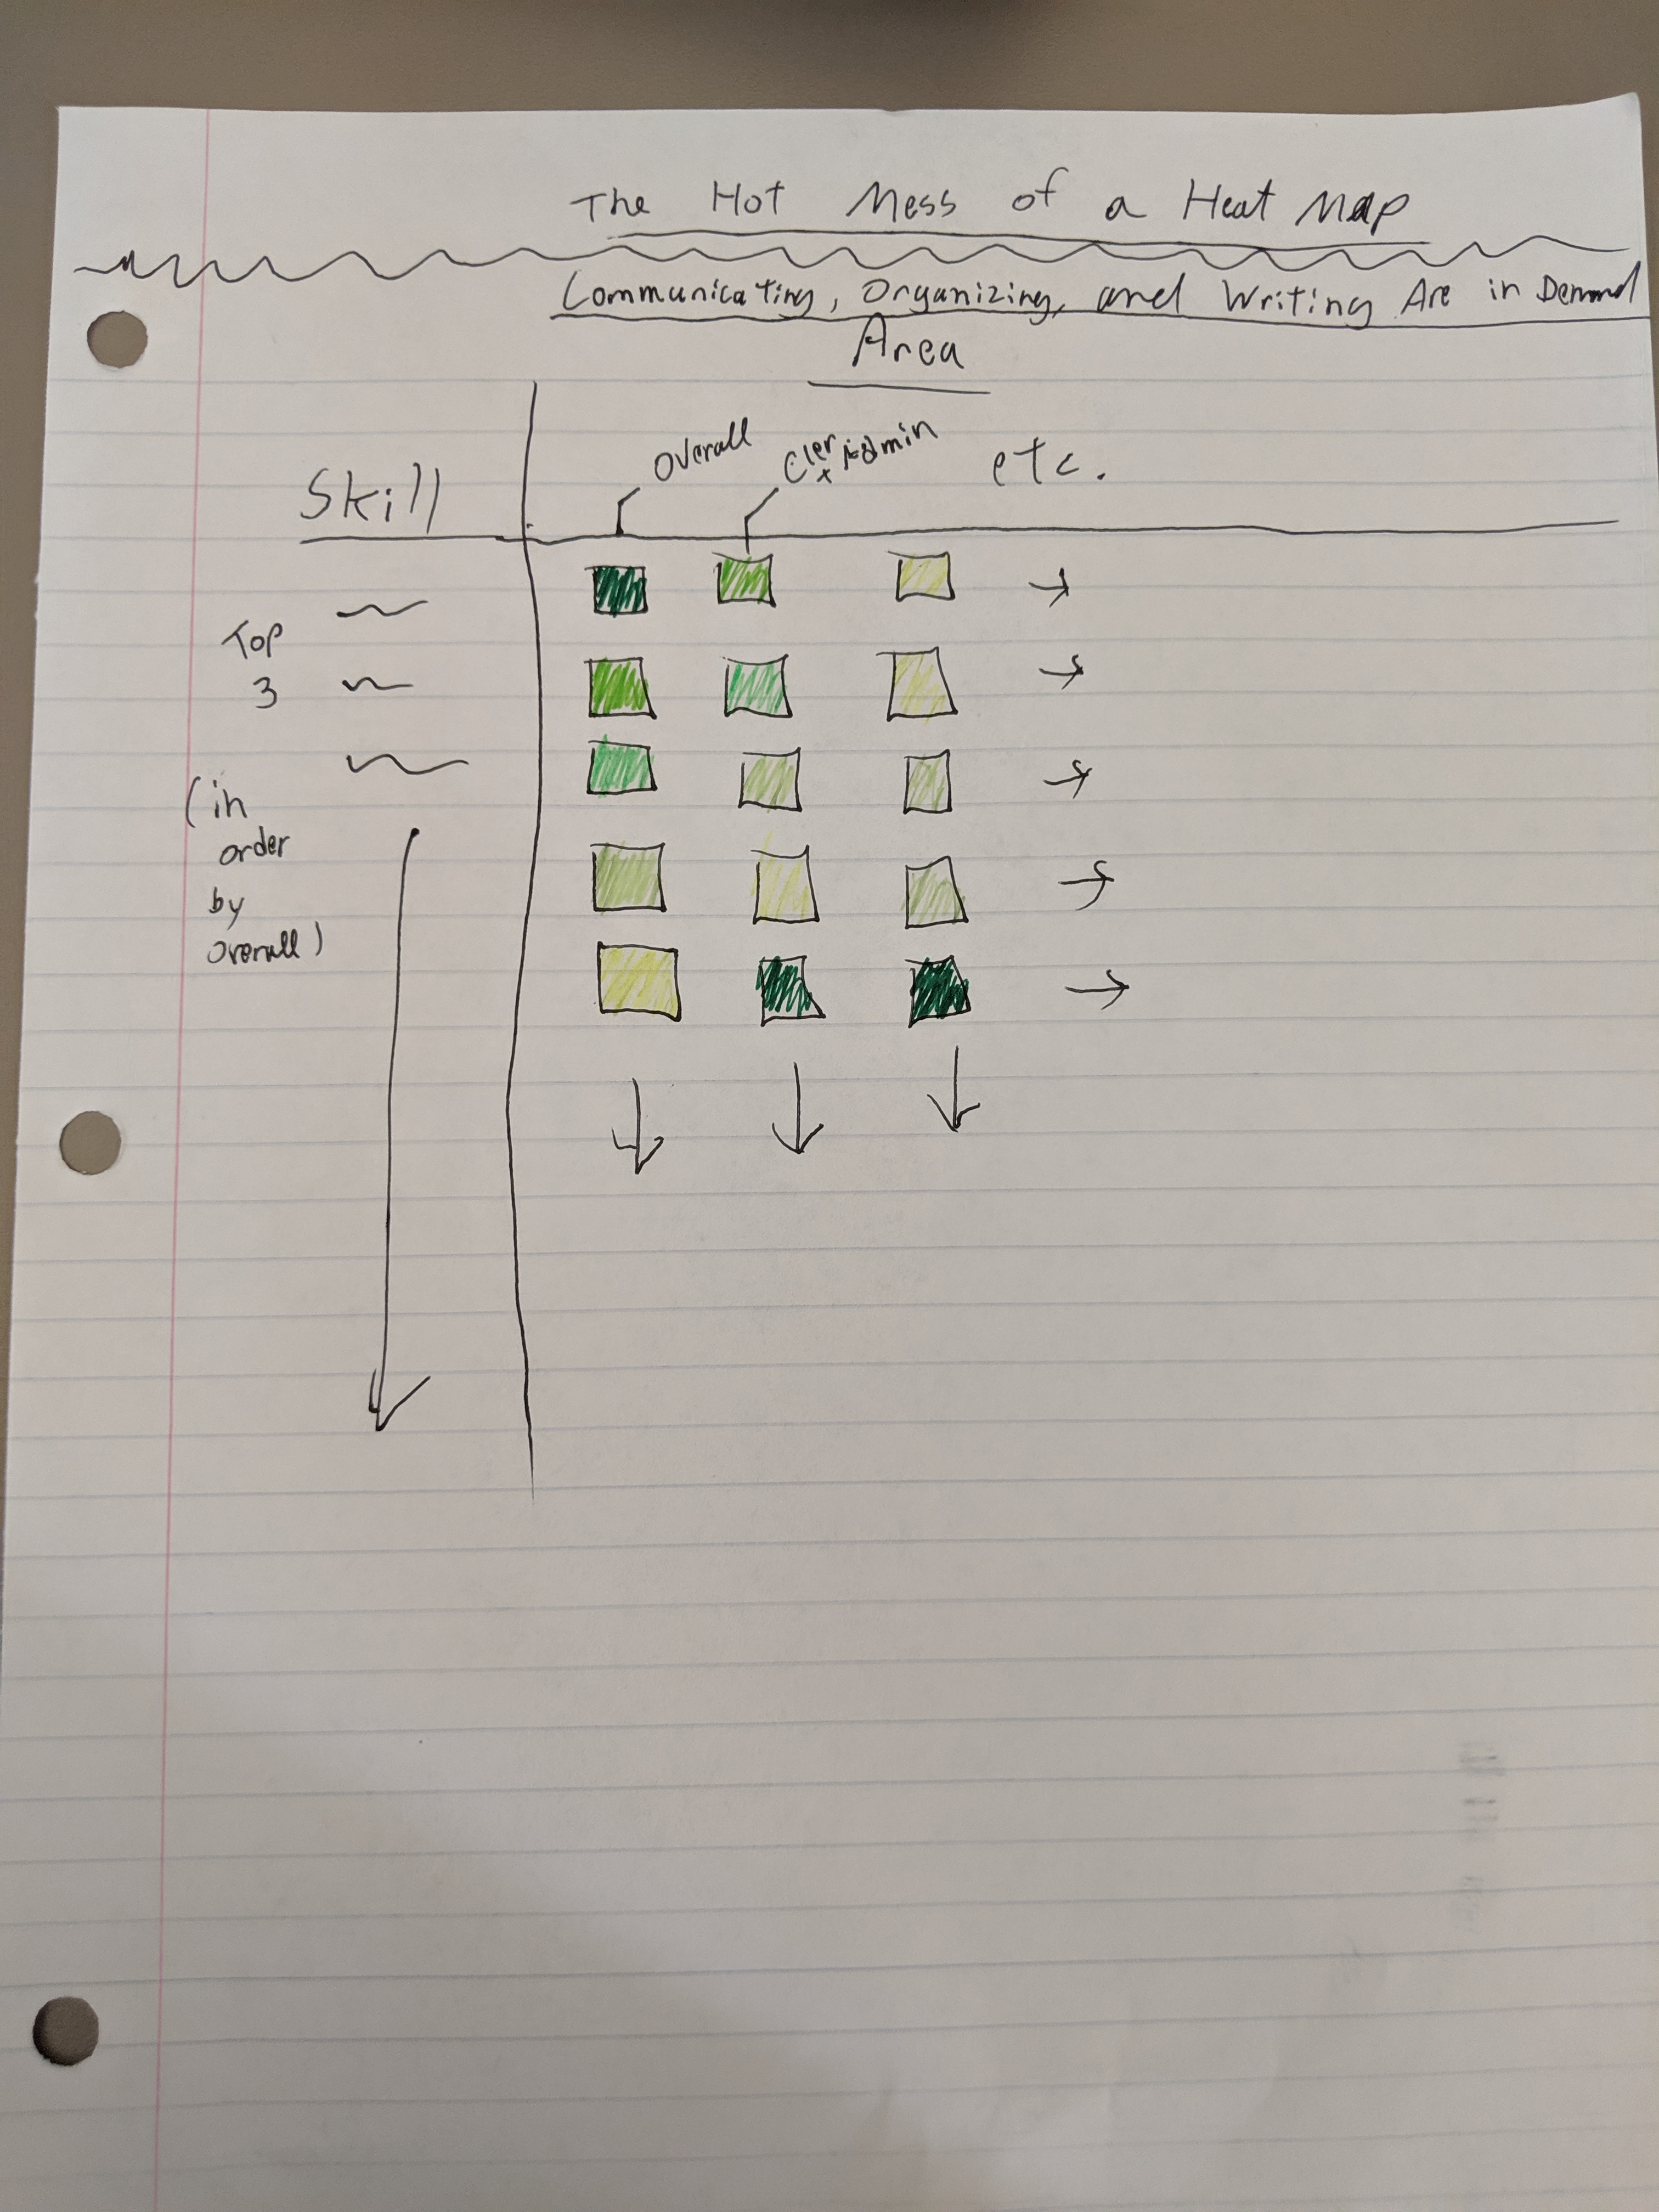 The Hot Mess of a Heat Map
Communicating, Organizing, and Writing Are in Demand
Area
Skill
Overall
Cler + Admin
etc.
Top
3
(in
order
by
overall)